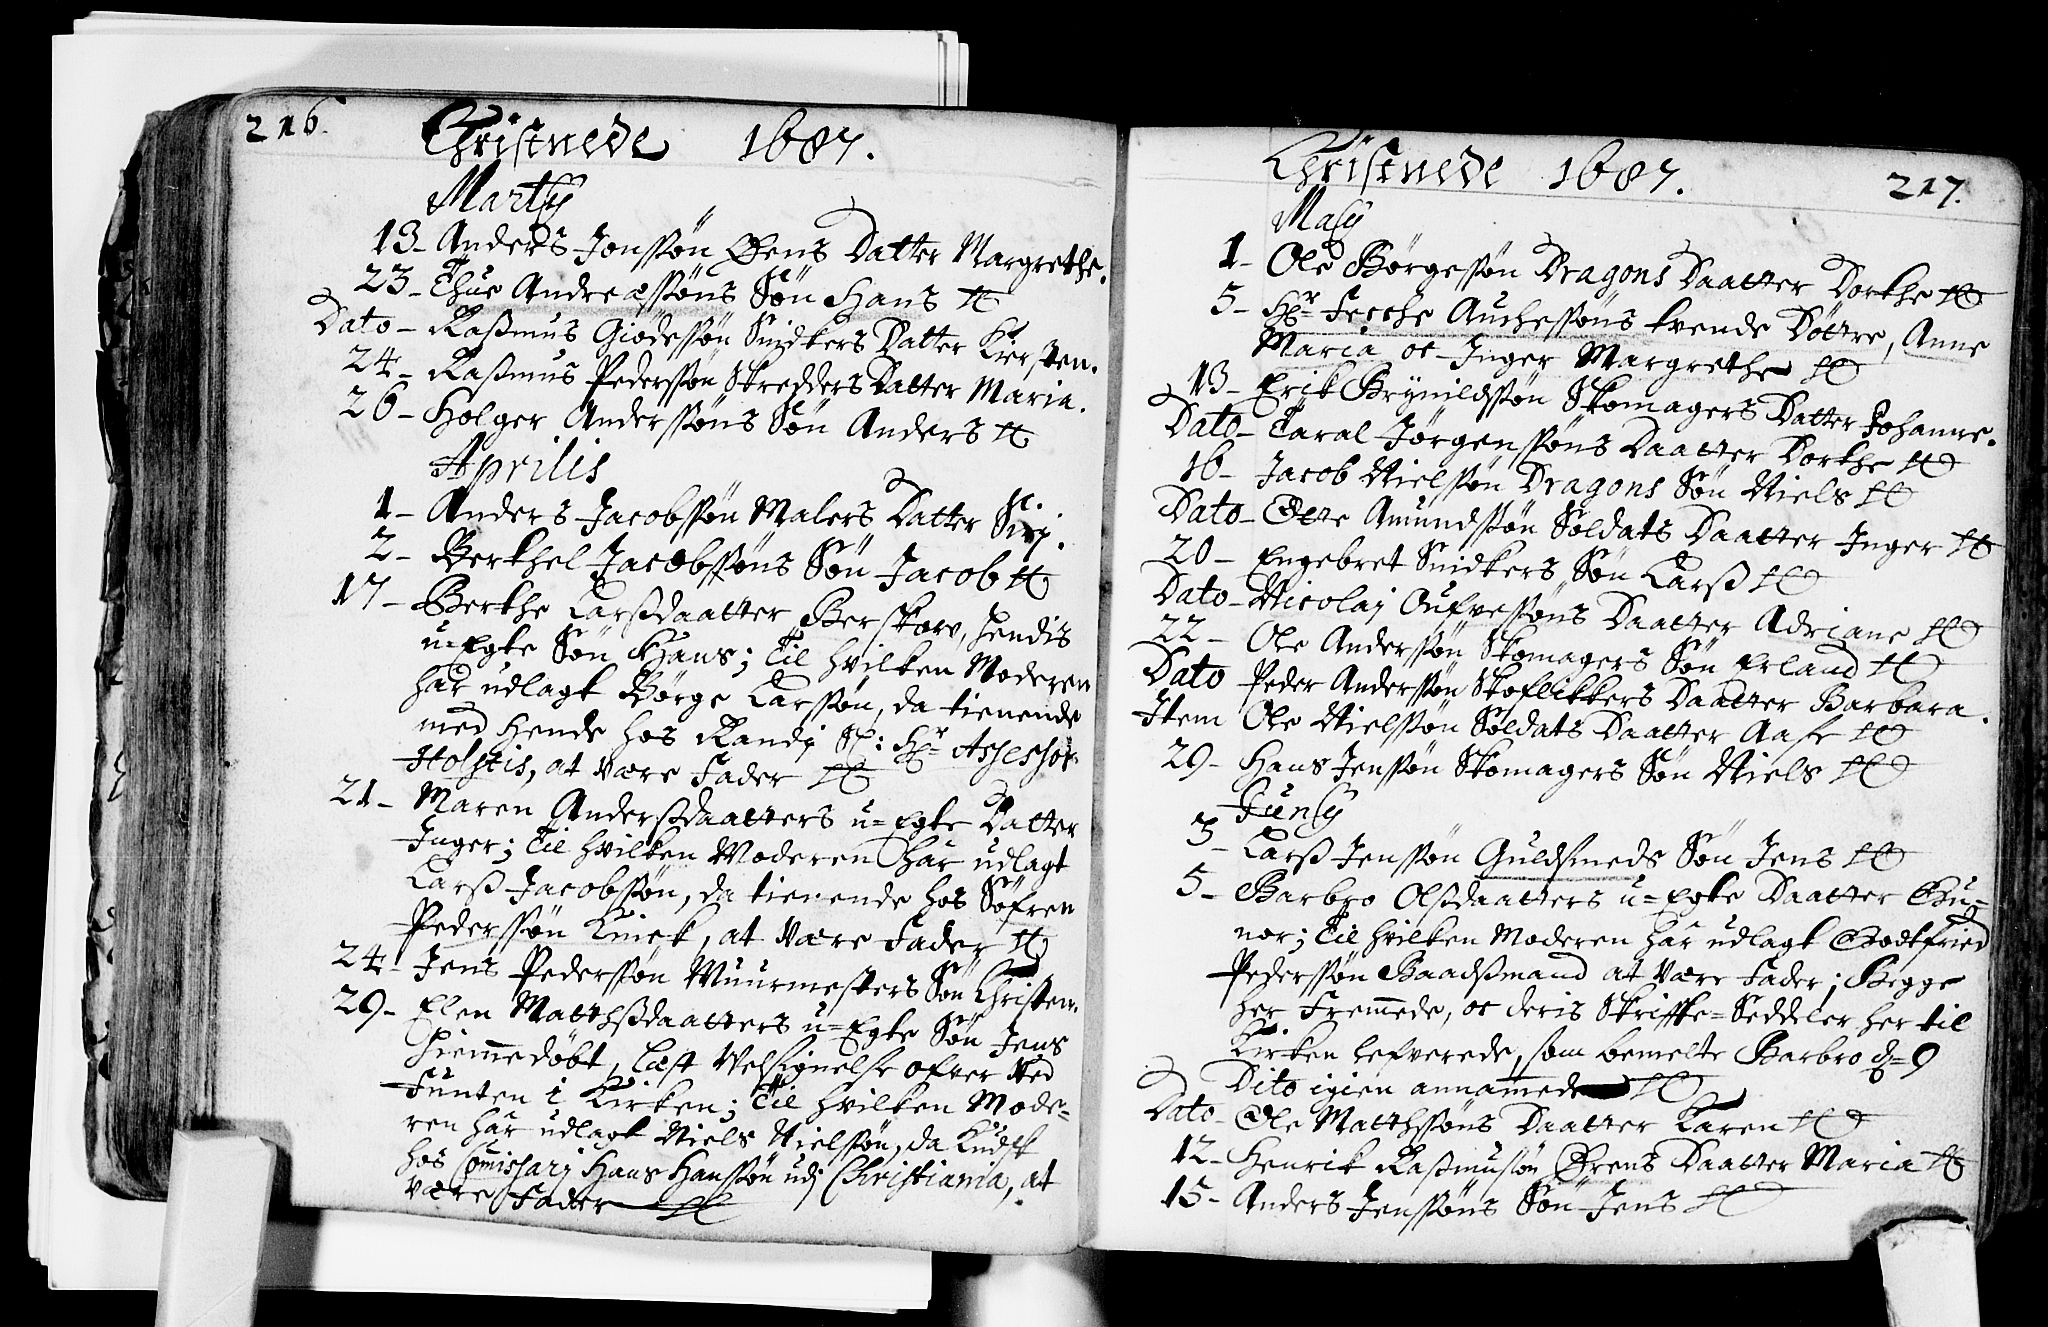 216.
Christnede 1687.
Martij
13- Anders Jonssøn Øens Datter Margrethe.
23- Thue Andreæssøns Søn Hans
Dato- Rasmus Giødessøn Snidkers Datter Kiersten.
24- Rasmus Pederssøn Skredders Datter Maria.
26- Holger Anderssøns Søn Anders
Aprilis
1- Anders Jacobssøn Malers Datter Siri.
2- Berthel Jacobssøns Søn Jacob
17- Berthe Larssdaatter Berskow, hendis
u-Egte Søn Hans; Til hvilken Moderen
har udlagt Børge Larssøn, da tienende
med hende hos Randi Sl: Hr Assessor
Holstis, at være Fader
21- Maren Andersdaatters u-Egte Datter
Inger; Til hvilken Moderen har udlagt
Larss Jacobssøn, da tienende hos Søfren
Pederssøn Kinck, at være Fader
24- Jens Pederssøn Muurmesters Søn Christen.
29- Elen Matthssdaatters u-Egte Søn Jens
hiemmedøbt, læst Velsignelse ofver Ved
Funten i Kirken; Til hvilken Mode-
ren har udlagt Niels Nielssøn, da Kudsk
hos Comissarj Hans Hanssøn udj Christiania, at
være Fader
Christnede 1687. 217.
Maij
1- Ole Børgessøn Dragons Daatter Dorthe
5- Hr Fesche Auchessøns tvende Døttre, Anne
Maria oc Inger Margrethe
13- Erik Brynildssøn Skomagers Datter Johanne.
Dato- Taral Jørgenssøns Daatter Dorthe
16- Jacob Nielssøn Dragons Søn Niels
Dato- Otte Amundssøn Soldats Daatter Inger
20- Engebret Snidkers Søn Larss
Dato- Nicolaj Oufvessøns Daatter Adriane
22- Ole Anderssøn Skomagers Søn Erland
Dato Peder Anderssøn Skoflikkers Daatter Barbara.
Item Ole Nielssøn Soldats Daatter Aase
29- Hans Jenssøn Skomagers Søn Niels
Junij
3- Larss Jenssøn Guldsmeds Søn Jens
5- Barbro Olssdaatters u-Egte Daatter Gu-
nor; Til hvilken Moderen har udlagt Godtfried
Pederssøn Baadssmand at være Fader; Begge
her Fremmede, oc deris Skrifte-Seddeler her til
Kirken lefverede, som bemelte Barbro d- 9
Dito igien annammede
Dato- Ole Matthssøns Daatter Karen
12- Henrik Rasmusøn Ørens Daatter Maria
15- Anders Jenssøns Søn Jens